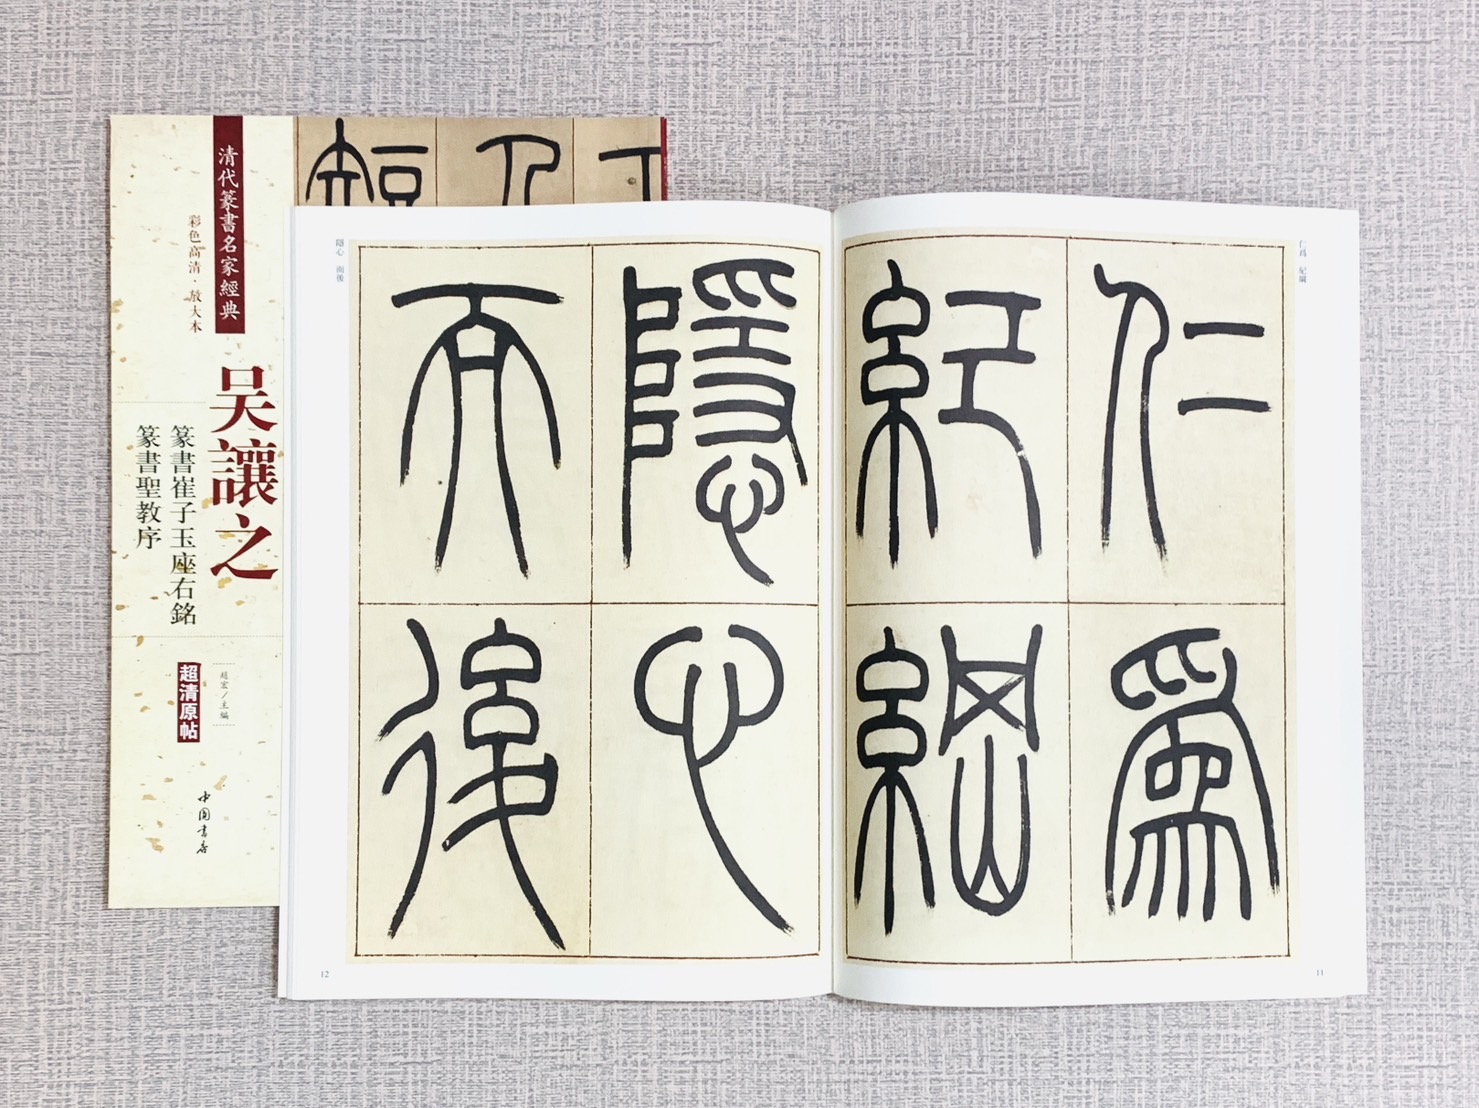 清代篆書名家經典
彩色高清·放大本
吴讓之
篆書崔子玉座右銘
篆書聖教序
趙宏/主編
超清原帖
中国書店
短
人
仁爲 紀綱
仁爲
紀綱
11
隱心
而後
隱心 而後
12